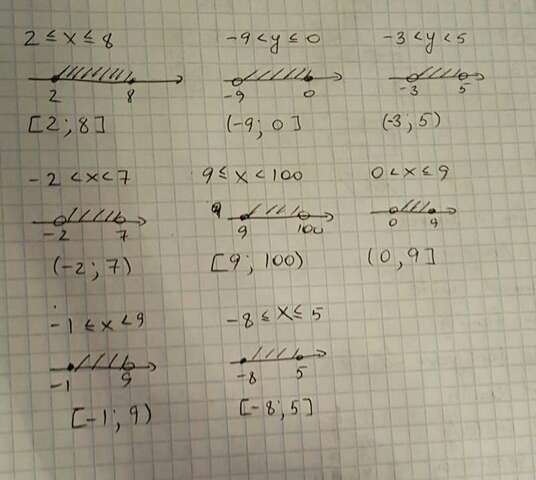 2 ≤ x ≤ 8
-9 < y ≤ 0
-3 < y < 5
2 8
-9 0
-3 5
[2; 8]
(-9; 0]
(-3; 5)
-2 < x < 7
9 ≤ x < 100
0 < x ≤ 9
-2 7
9 100
0 9
(-2; 7)
[9; 100)
(0, 9]
-1 ≤ x < 9
-8 ≤ x ≤ 5
-1 9
-8 5
[-1; 9)
[-8; 5]